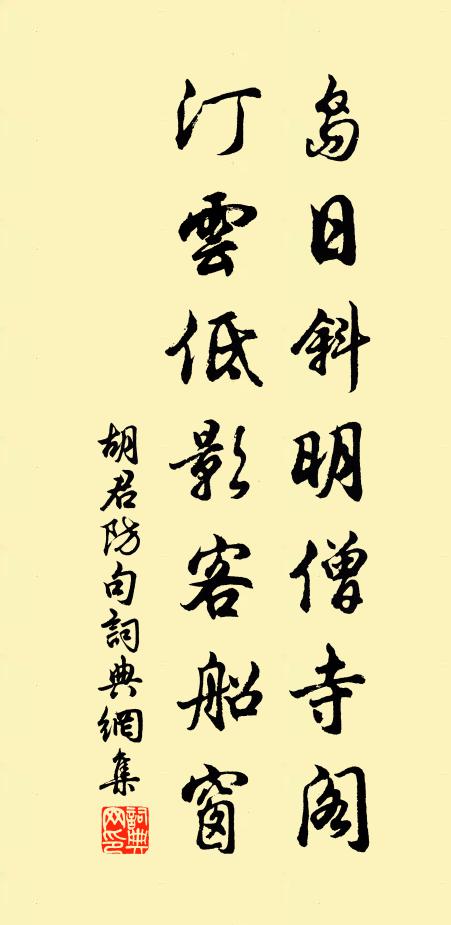 島日斜明僧寺阁
汀雲低影客船窗
胡君防句詞典網集
詞典网印